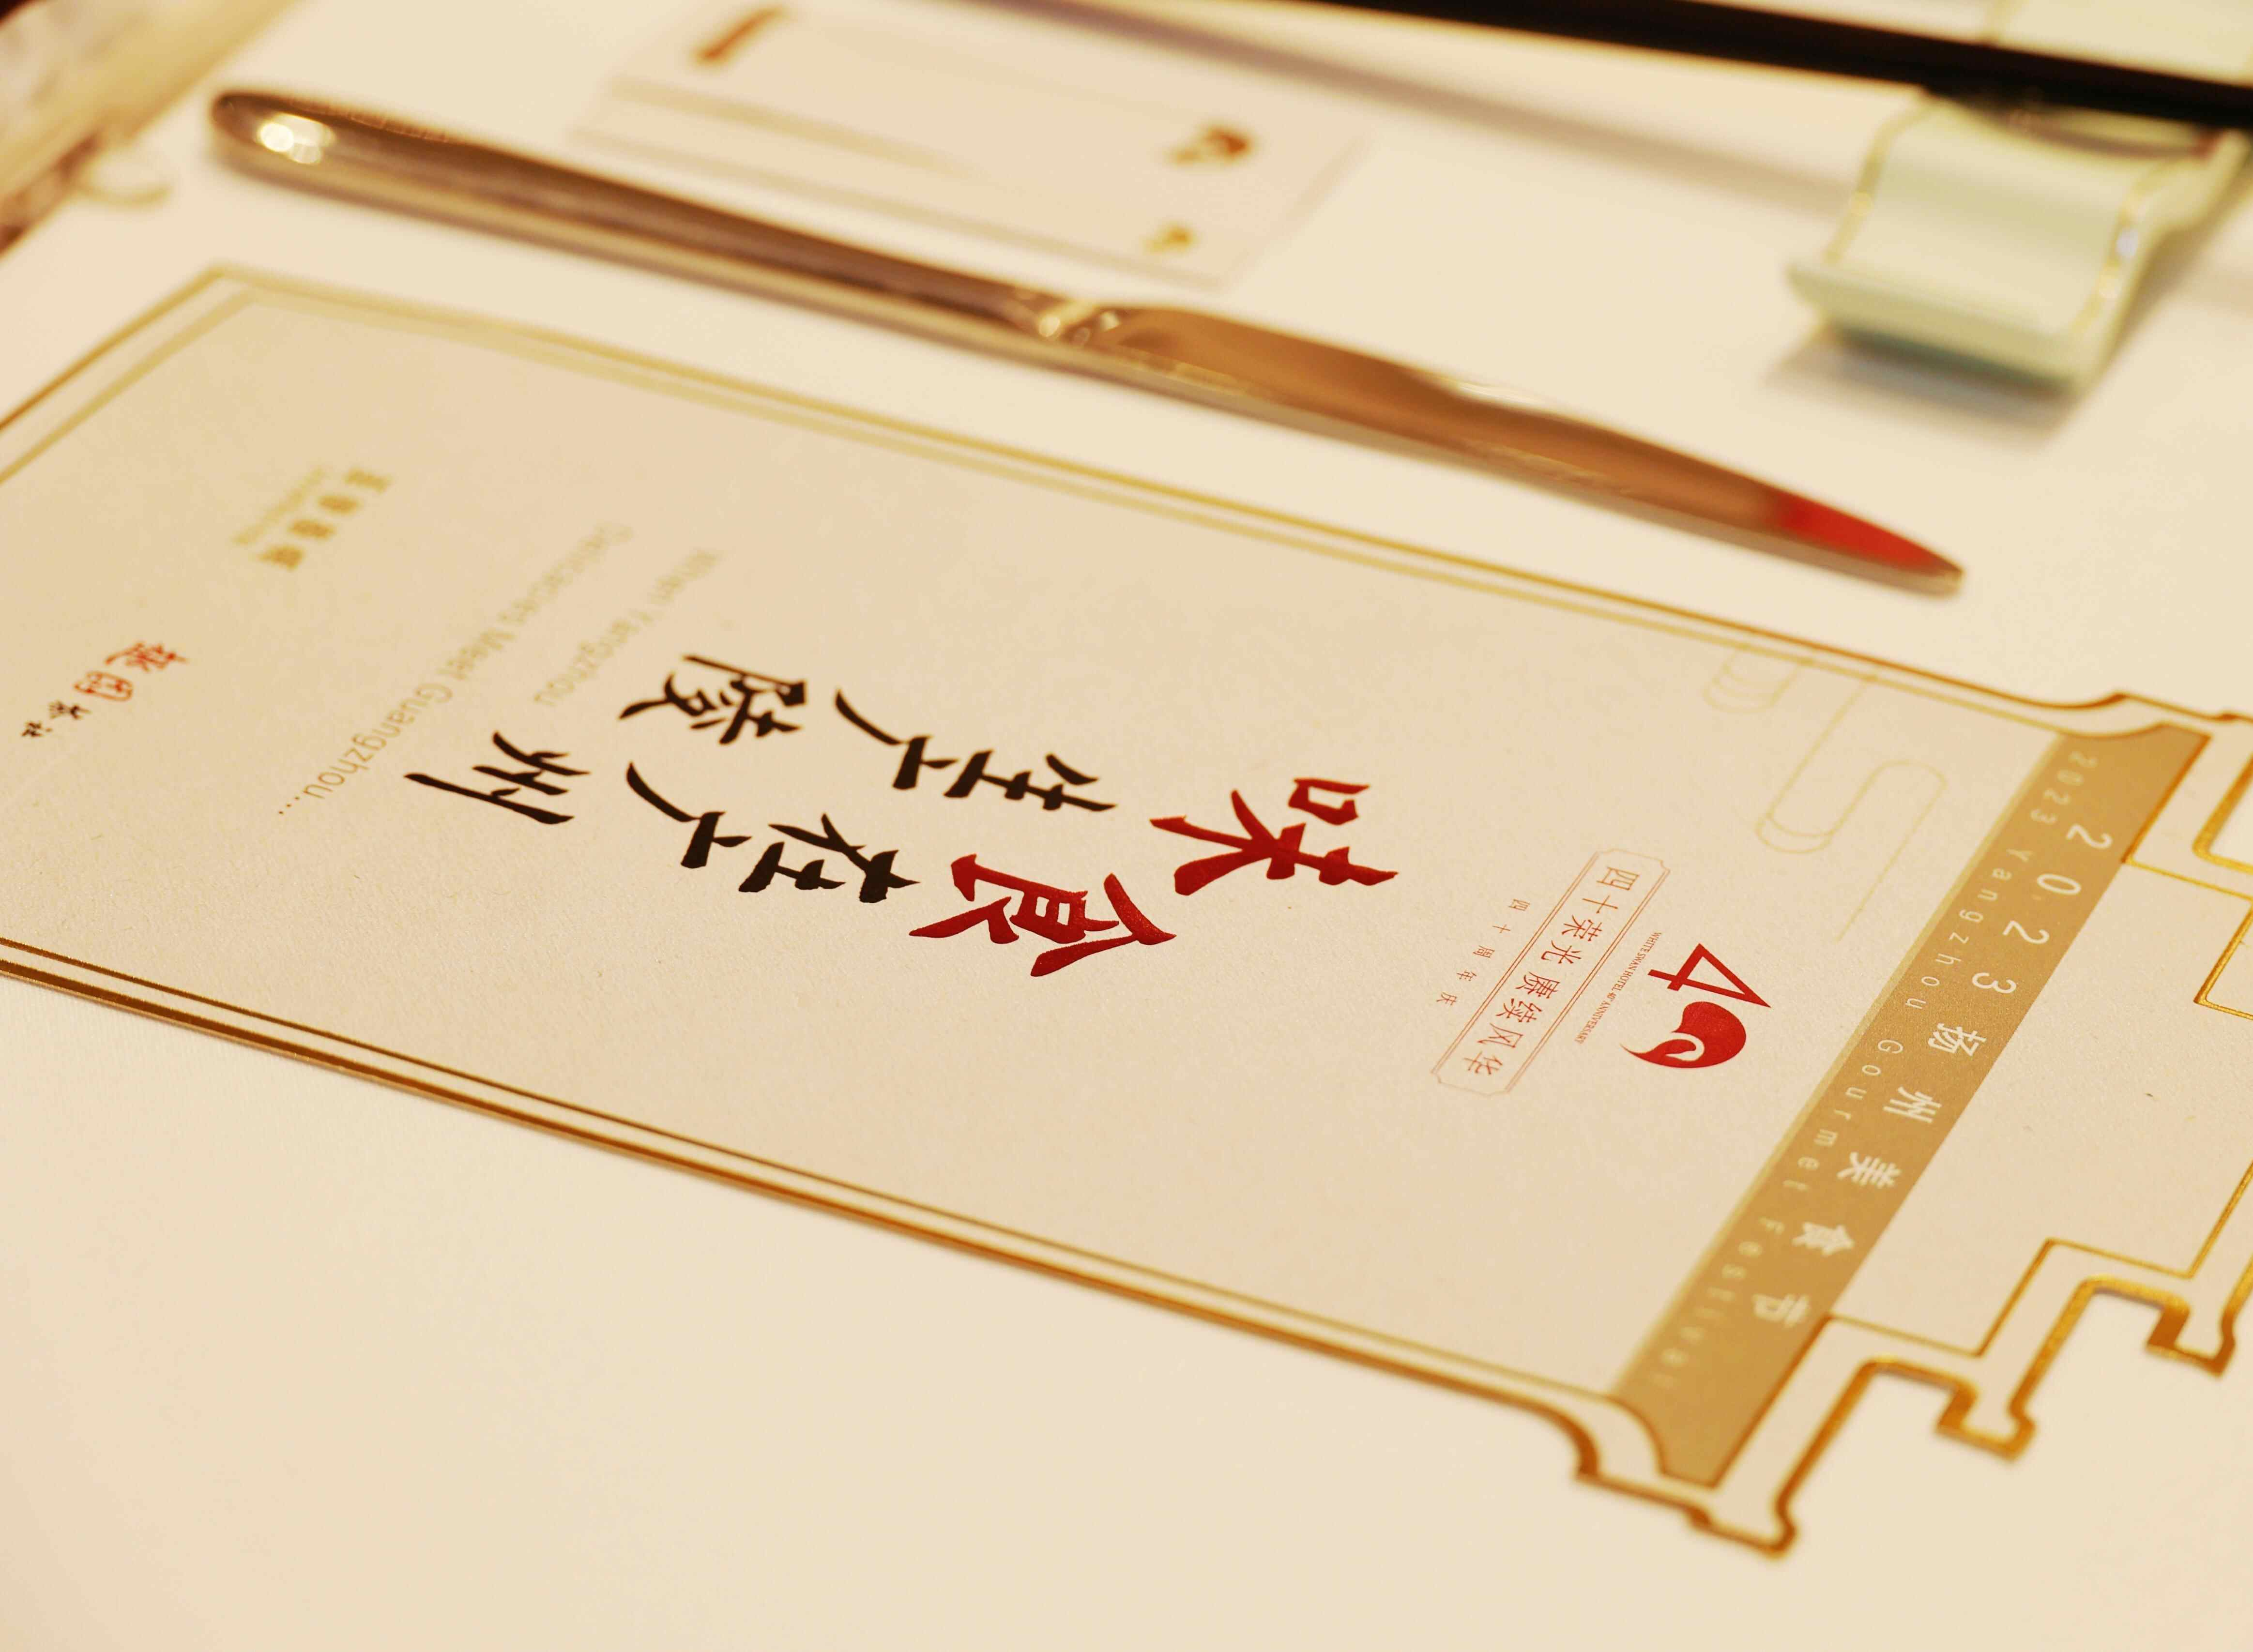 2023扬州美食节
2023 Yangzhou Gourmet Festival
40
WHITE SWAN HOTEL 40th ANNIVERSARY
四十荣光 赓续风华
四十周年庆
味生广陵
食在广州
When Yangzhou
Delicacies Meet Guangzhou...
玉堂春暖
趣园茶社